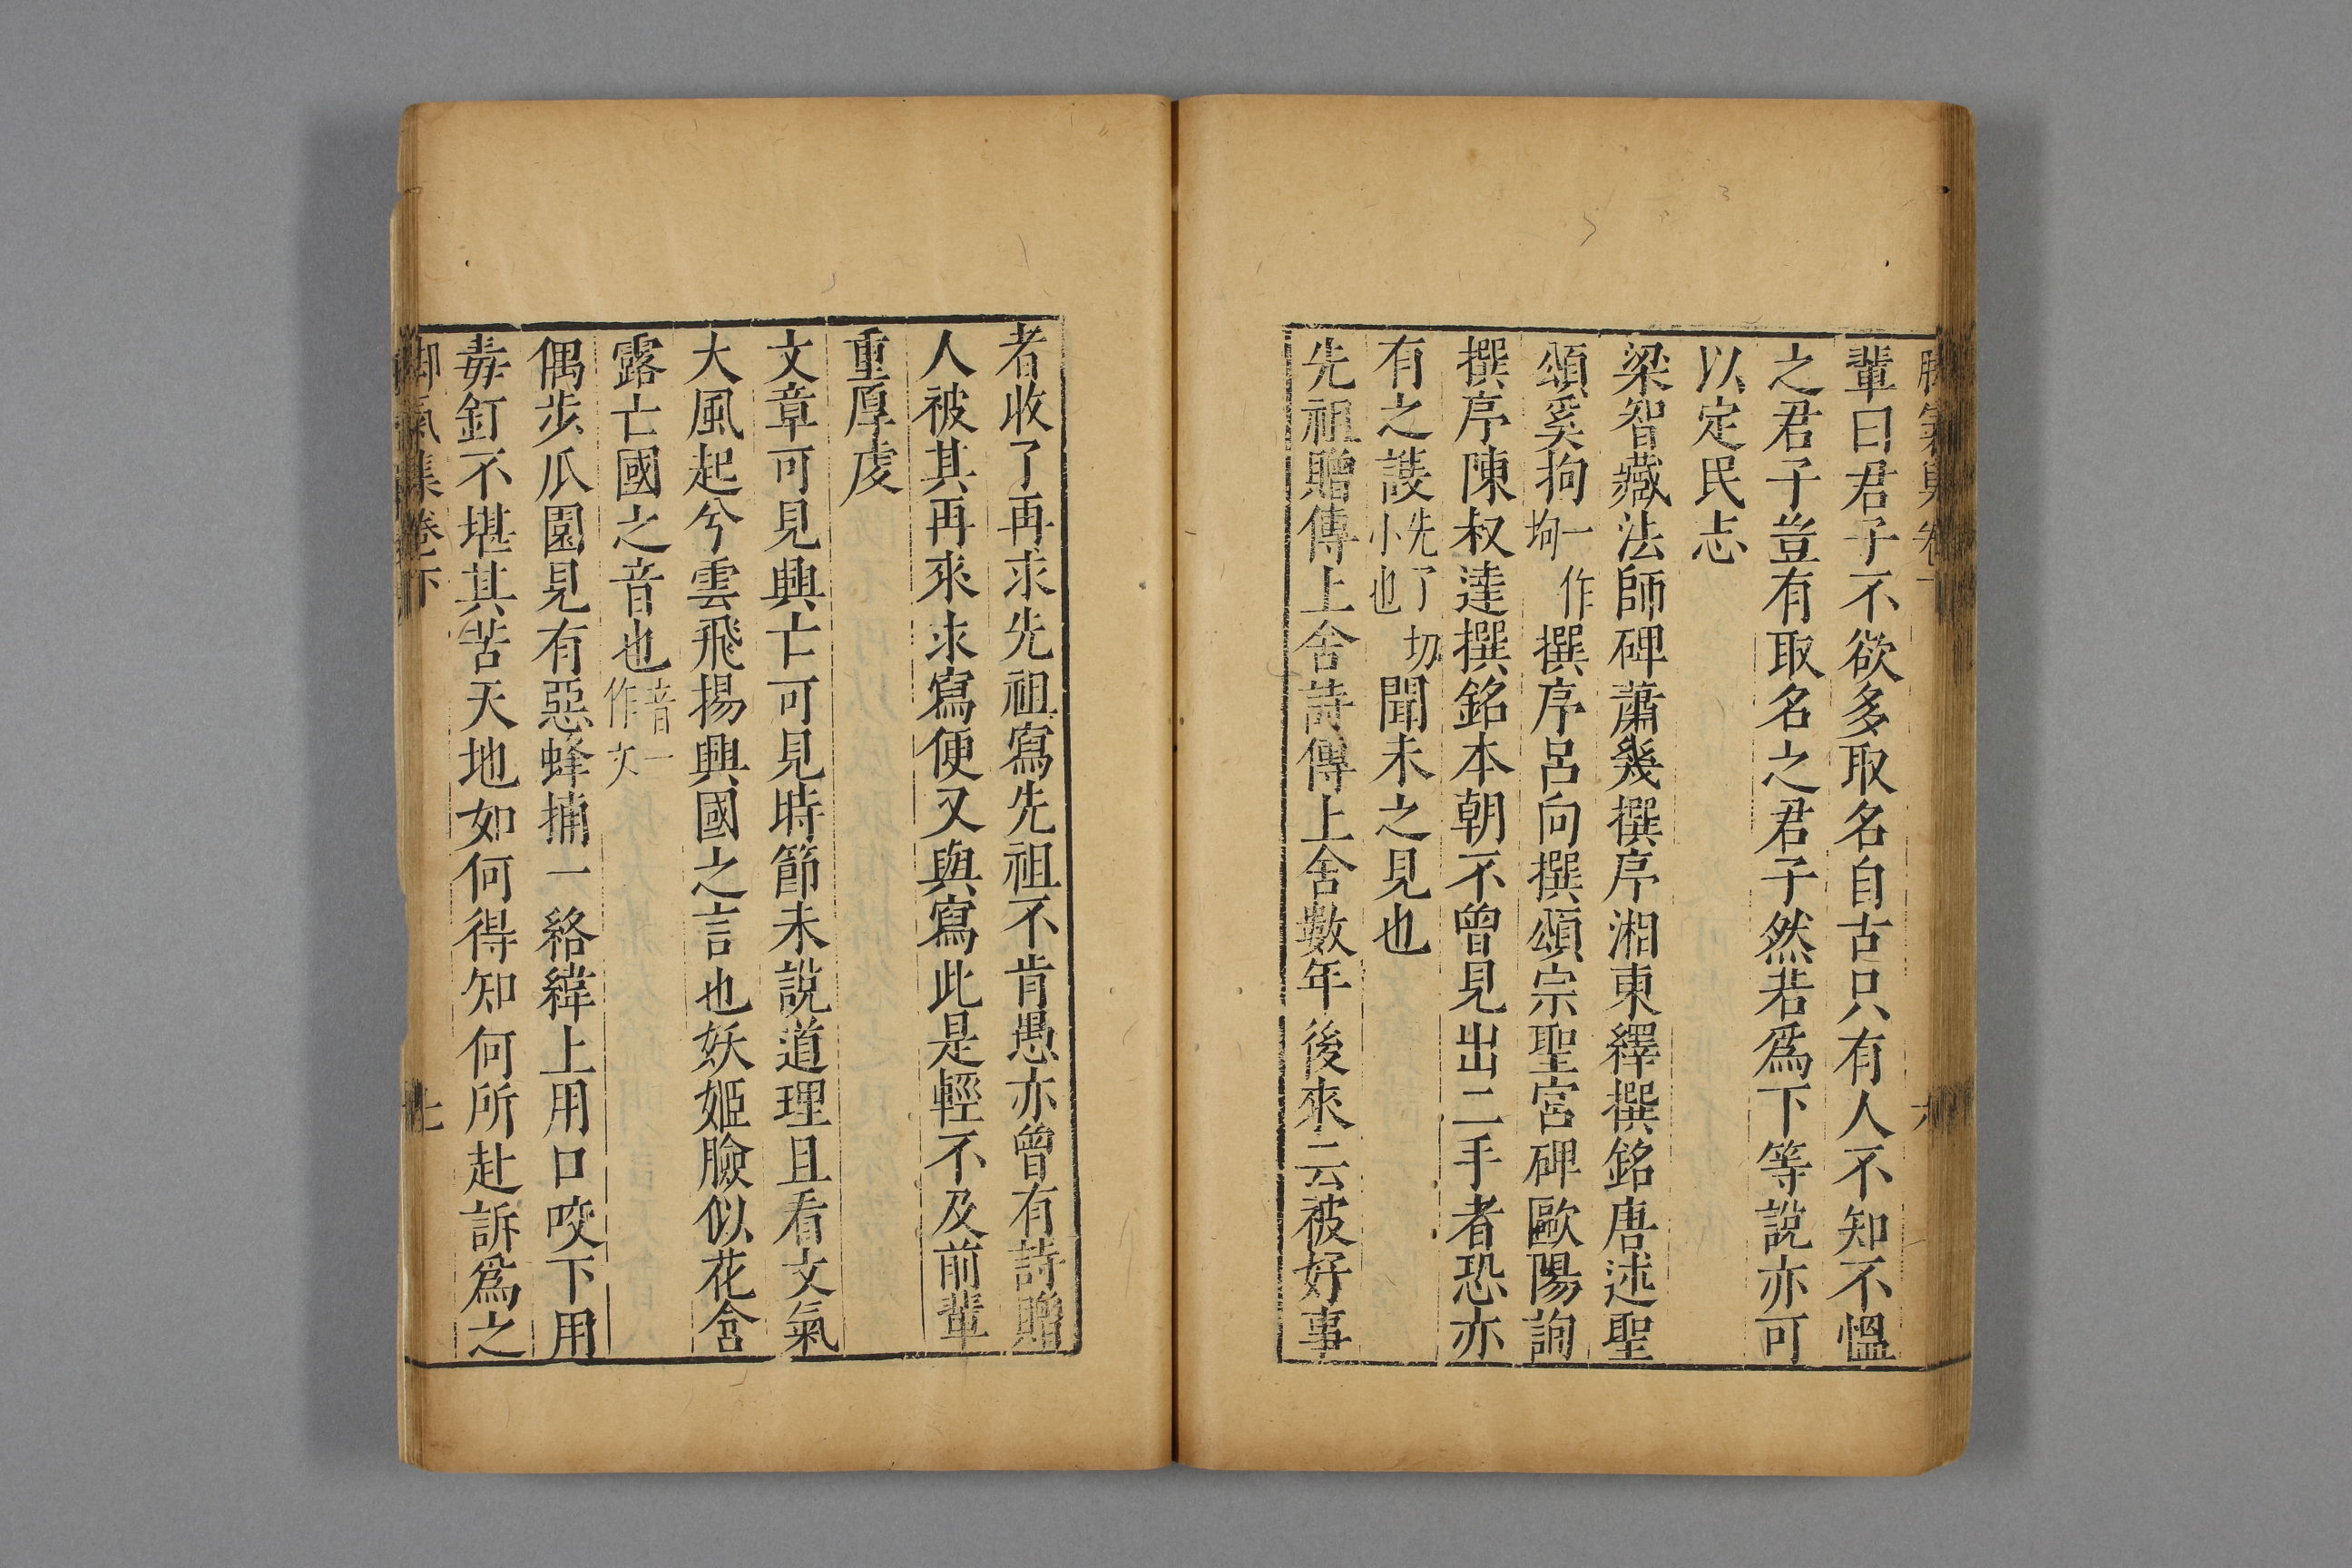 輩曰君子不欲多取名自古只有人不知不慍
之君子豈有取名之君子然若爲下等說亦可
以定民志
梁智藏法師碑蕭幾撰序湘東繹撰銘唐述聖
頌奚拘一作坸撰序呂向撰頌宗聖宮碑歐陽詢
撰序陳叔達撰銘本朝不曾見出二手者恐亦
有之謏先了切小也聞未之見也
先祖贈傳上舍詩傳上舍數年後來云被好事
者收了再求先祖寫先祖不肯愚亦曾有詩贈
人被其再來求寫便又與寫此是輕不及前輩
重厚處
文章可見興亡可見時節未說道理且看文氣
大風起兮雲飛揚興國之言也妖姬臉似花含
露亡國之音也音一作文
偶步瓜園見有惡蜂捕一絡緯上用口咬下用
毒釘不堪其苦天地如何得知何所赴訴爲之
脚氣集卷下 七